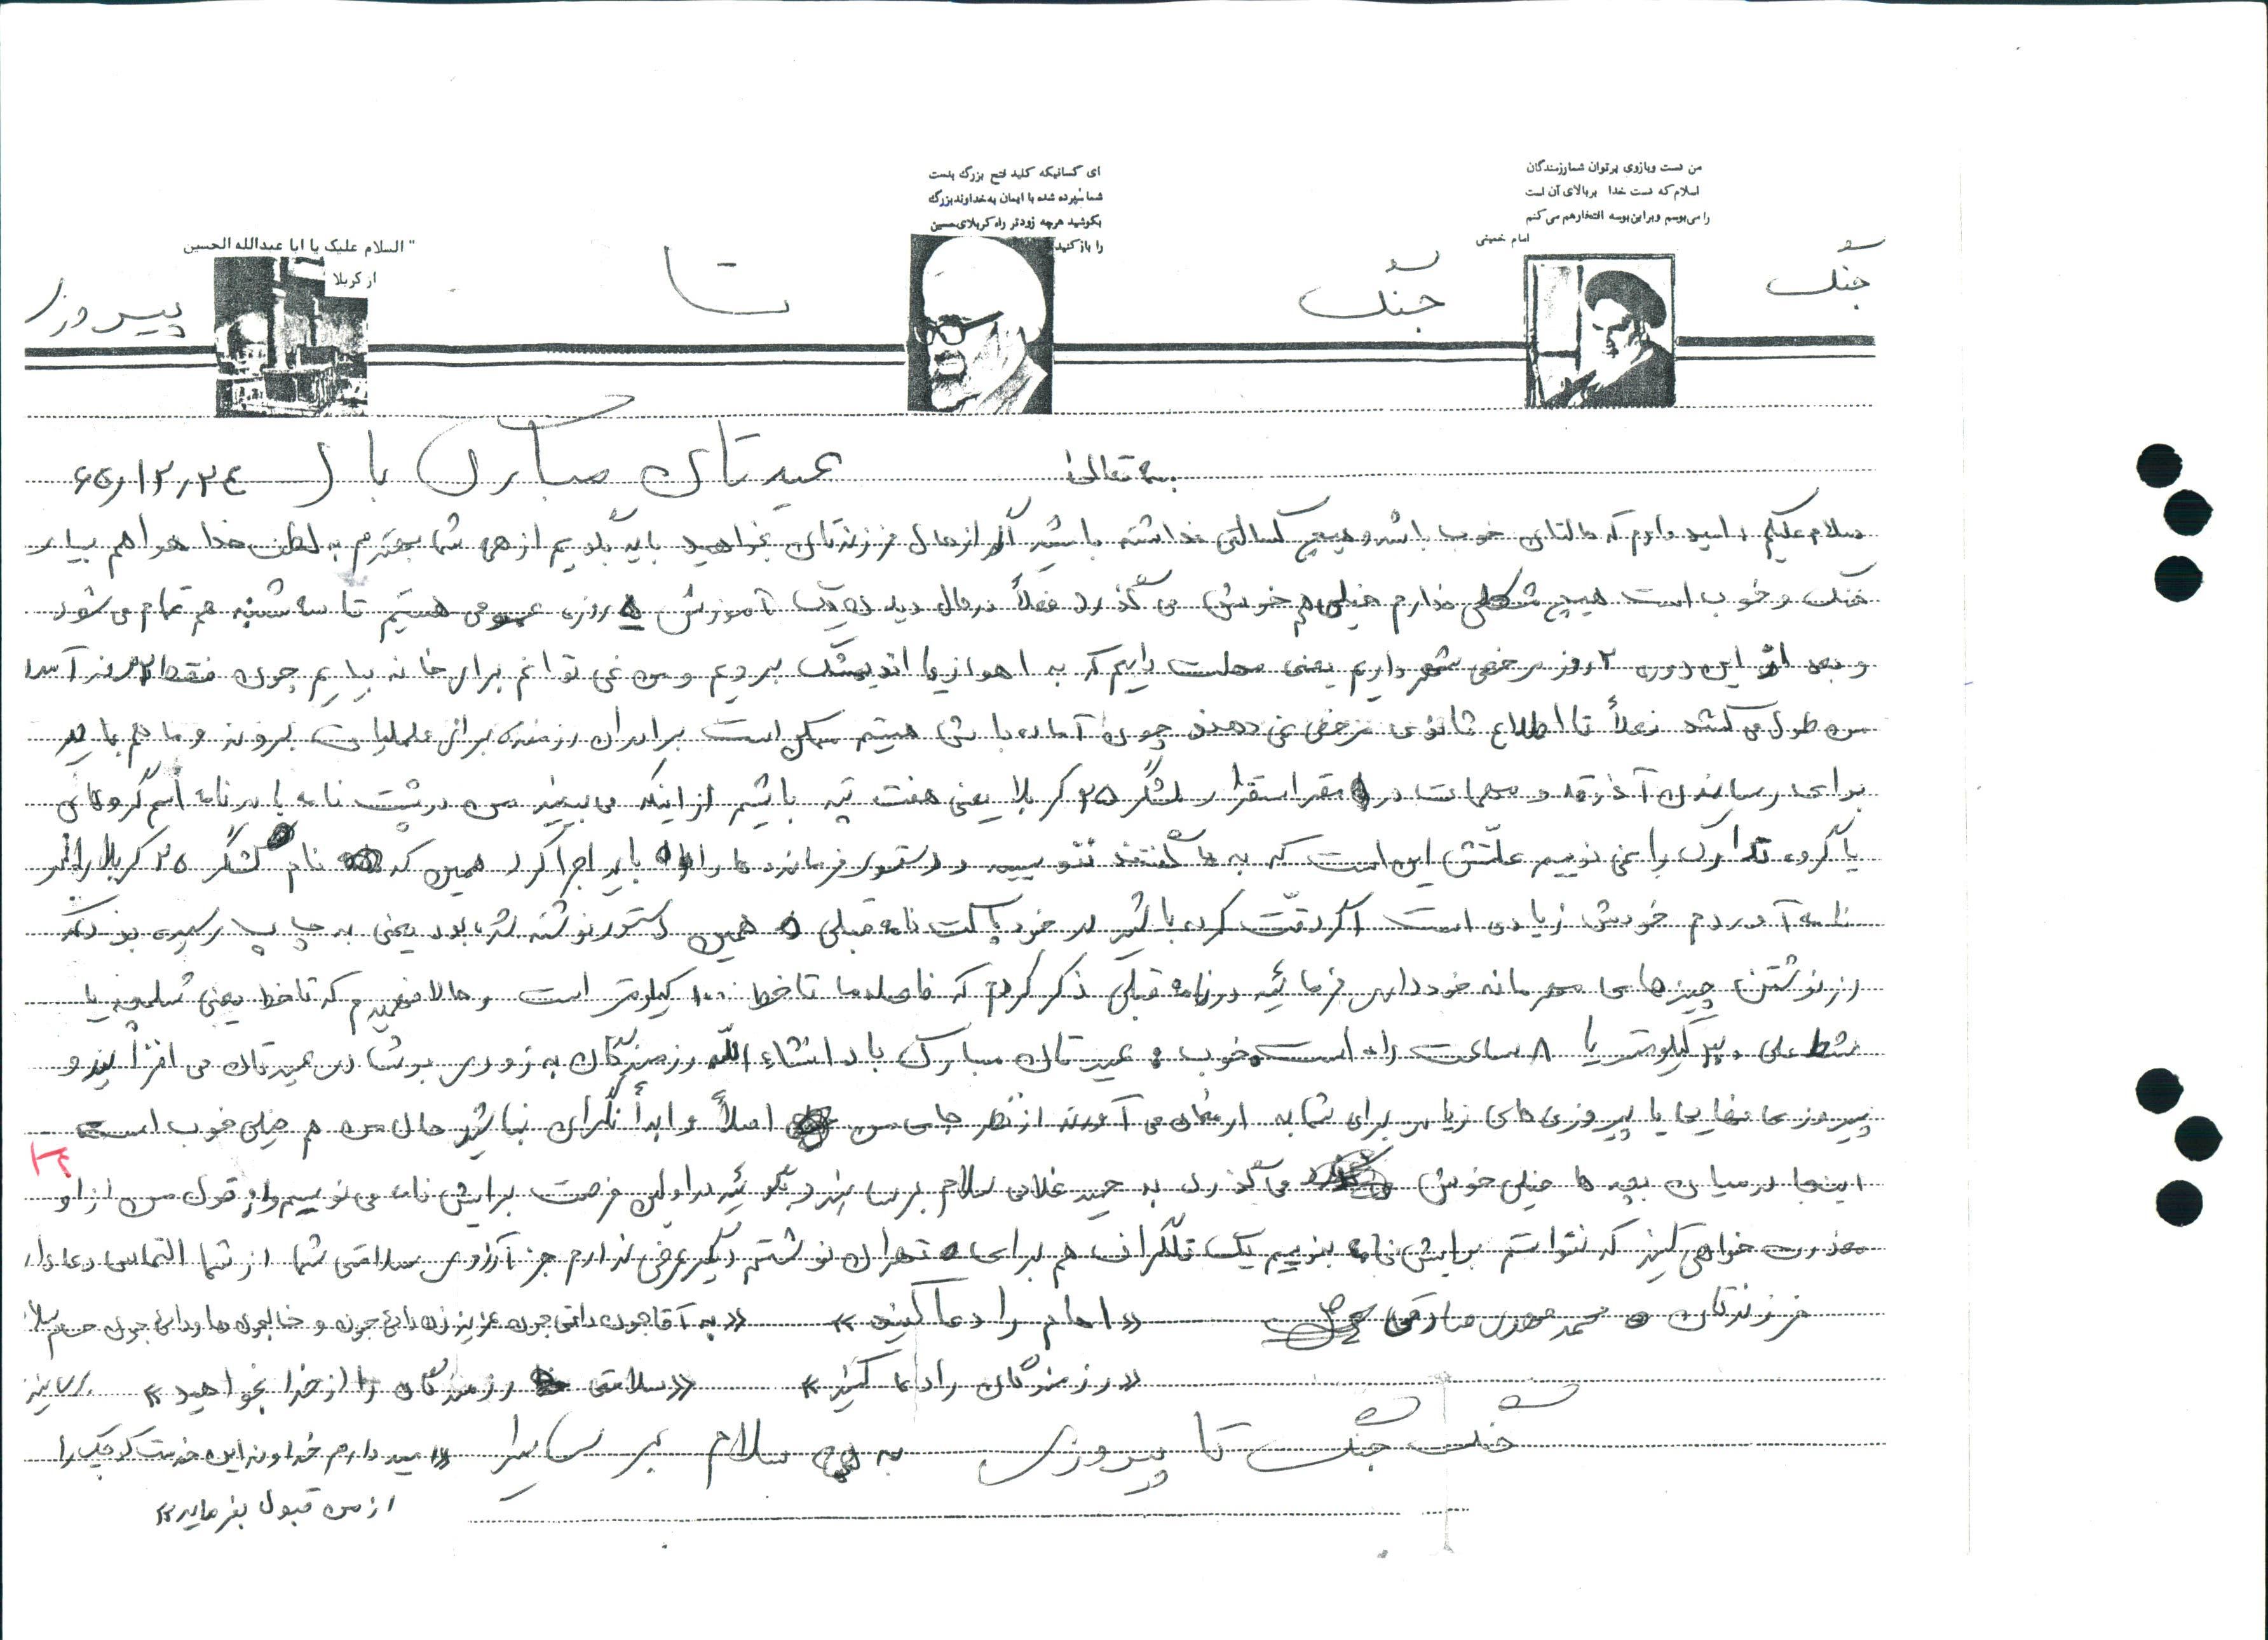 من دست وبازوی پرتوان شما رزمندگان
اسلام که دست خدا بربالای آن است
را می‌بوسم وبراین بوسه افتخارهم می‌کنم
امام خمینی
ای کسانیکه کلید فتح بزرگ بدست
شما سپرده شده با ایمان به خداوند بزرگ
بکوشید هرچه زودتر راه کربلای حسین
را باز کنید
" السلام علیک یا ابا عبدالله الحسین
از کربلا
جنگ جنگ تا پیروزی
بسمه تعالی عیدتان مبارک باد ۶۵/۱۲/۲۴
سلام علیکم، امید وارم که حالتان خوب باشد و هیچ کسالتی نداشته باشید اگر از حال فرزندتان بخواهید باید بگویم از همه شما بهترم به لطف خدا هوا هم بسیار
خنک و خوب است هیچ مشکلی ندارم خیلی هم خوش می گذرد فعلاً در حال دیدن یک آموزش ۵ روزه عمومی هستیم تا سه شنبه هم تمام می شود
و بعد از این دوره ۲ روز مرخصی شهر داریم یعنی مهلت داریم که به اهواز یا اندیمشک برویم و من نمی توانم برای خانه بیایم چون فقط ۲ روز آمدن
من طول می کشد فعلاً تا اطلاع ثانوی مرخصی نمی دهند چون آماده باش هستیم ممکن است برادران رزمنده برای عملیات بروند و ما هم باید
برای رساندن آذوقه و مهمات در مقر استقرار لشگر ۲۵ کربلا یعنی هفت تپه باشیم از اینکه می بینید من در پشت نامه یا در نامه اسم گروهان
یا گروه تدارک را نمی نویسم علّتش این است که به ما گفتند ننویسید و دستور فرمانده ها را باید اجرا کرد همین که نام لشگر ۲۵ کربلا را در
نامه آوردم خودش زیادی است اگر دقّت کرده باشید در خود پاکت نامه قبلی همین دستور نوشته شده بود یعنی به چاپ رسیده بود که
از نوشتن چیزهای محرمانه خودداری فرمائید در نامه قبلی ذکر کردم که فاصله ما تا خط ۱۰۰ کیلومتر است و حالا فهمیدم که تا خط یعنی شلمچه یا
شط علی کیلومتر یا ۸ ساعت راه است. خوب عیدتان مبارک باد انشاء اللّه رزمندگان به زودی بر شادی عیدتان می افزایند و
پیروزی نهایی یا پیروزی های زیادی برای شما به ارمغان می آورند از نظر جای من اصلاً و ابداً نگران نباشید حال من هم خیلی خوب است
اینجا در میان بچه ها خیلی خوش می گذرد به حمید غلامی سلام برسانید و بگوئید در اولین فرصت برایش نامه می نویسم و از قول من از او
معذرت خواهی کنید که نتوانستم برایش نامه بنویسم یک تلگراف هم برای تهران نوشتم دیگر عرضی ندارم جز آرزوی سلامتی شما از شما التماس دعا دارم
فرزندتان محمد مهدی صادقی «امام را دعا کنید» «به آقاجون دائی جون عزیز زن دائی جون و خاله جون ها و دائی جون سلام
«رزمندگان را دعا کنید» «سلامتی رزمندگان را از خدا بخواهید» برسانید
جنگ جنگ تا پیروزی به سلام برسانید «امید دارم خداوند این خدمت کوچک را
از من قبول بفرماید»